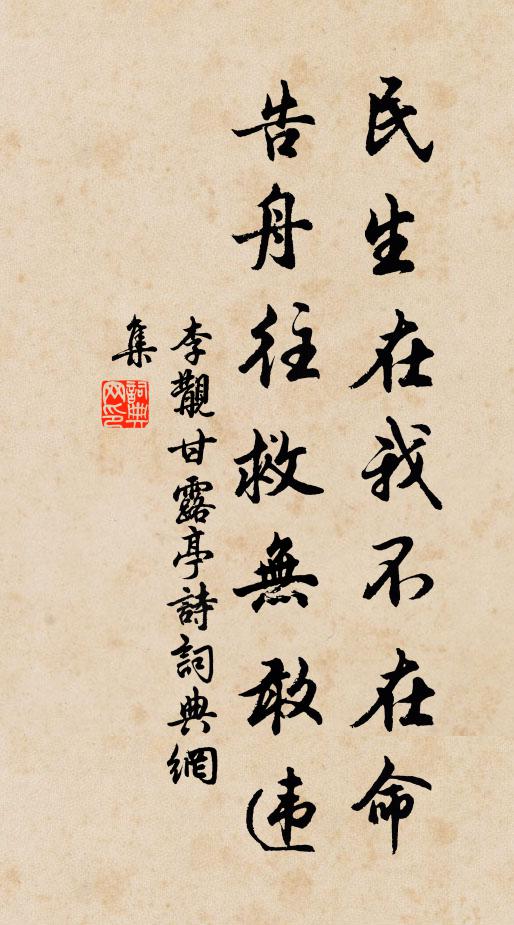 民生在我不在命
告舟往救無敢违
李覯甘露亭詩詞典網
集
詞典
网印